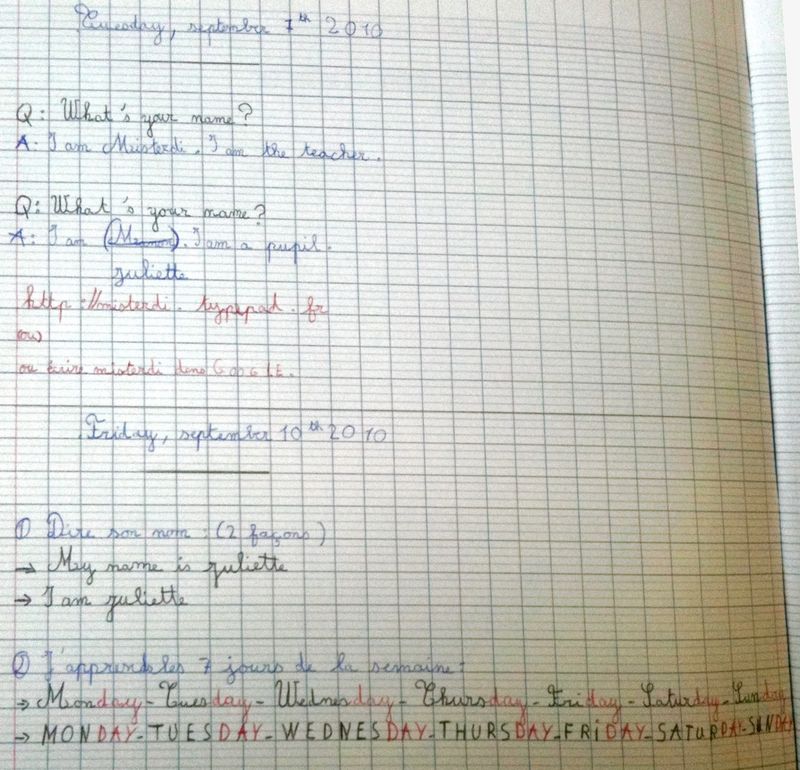 Tuesday, september 7th 2010
Q: What's your name?
A: I am Misterdi. I am the teacher.
Q: What's your name?
A: I am (M). I am a pupil.
juliette
http://misterdi.typepad.fr
(ou)
ou écrire misterdi dans GOOGLE.
Friday, september 10th 2010
① Dire son nom : (2 façons)
→ My name is juliette
→ I am juliette
② J'apprends les 7 jours de la semaine :
→ Monday - Tuesday - Wednesday - Thursday - Friday - Saturday - Sunday
→ MONDAY - TUESDAY - WEDNESDAY - THURSDAY - FRiDAY - SATURDAY - SUNDAY